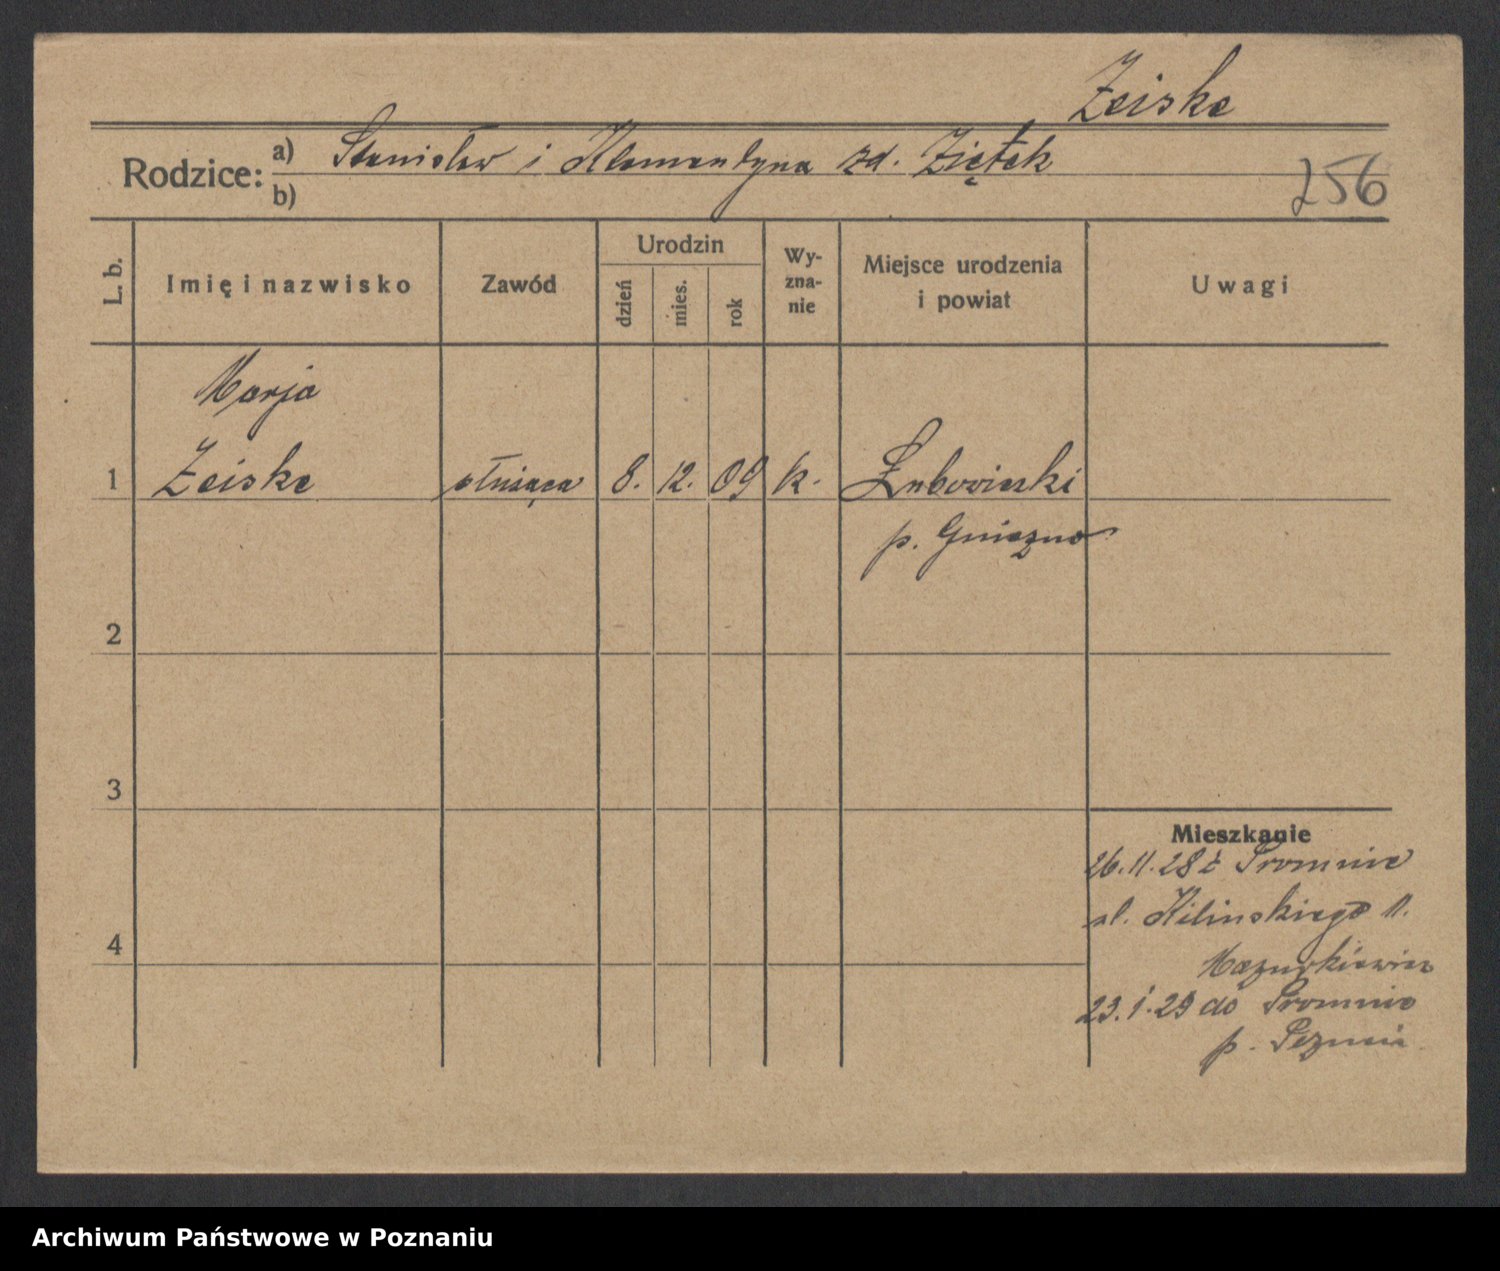 Zeiske
Rodzice: a) Stanisław i Klementyna zd. Ziętek
b)
256
L. b. Imię i nazwisko Zawód Urodzin dzień mies. rok Wy-zna-nie Miejsce urodzenia i powiat Uwagi
Marja
1 Zeiske służąca 8. 12. 09 k. Łubowiczki
p. Gniezno
2
3
Mieszkanie
26.11.28 z Promnie
ul. Kilinskiego 11.
4
Mazurkiewicz
23.1.29 do Promnie
p. Poznań
Archiwum Państwowe w Poznaniu